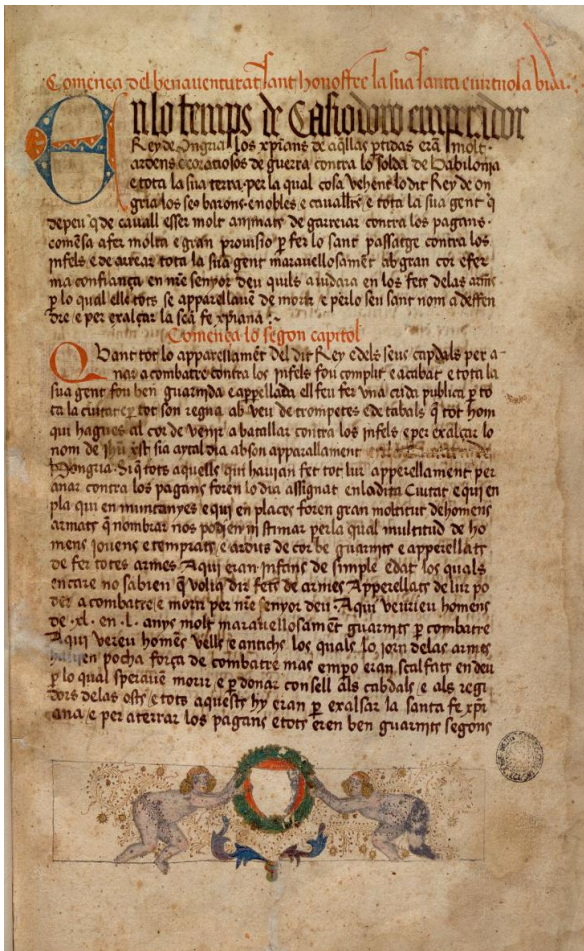 Comença del benaventurat sant honoffre la sua santa e virtuosa vida.
En lo temps de Casiodoro emperador
Rey de Ongria los xp̄ians de aq̄llas ꝑtidas erā molt
ardens e coratiosos de guerra contra lo solda de Babilonia
e tota la sua terra. per la qual cosa vehent lo dit Rey de on
gria los seꝰ barons enobles e cavallrs e tota la sua gent q̄
de peu q̄ de cavall esser molt animats de garreiar contra los pagans.
comēsa a fer molta e gran provisio ꝑ fer lo sant passatge contra los
infels e de arrear tota la sua gent maravellosamēt ab gran cor e fer
ma confiança en nr̄e senyor deu quils aiudara en los fets de las armˢ
ꝑ lo qual elle tots se apparellavē de morir e per lo seu sant nom a deffen
dre e per exalçar la scā fe xp̄iana
Comença lo segon capitol
Quant tot lo apparellamēt del dit Rey e dels seus capdals per a-
nar a combatre contra los infels fou complit e acabat e tota la
sua gent fou ben guarnida e appellada ell feu fer vna crida publica ꝑ to
ta la ciutat e ꝑ tot son regna ab veu de trompetes e de tabals q̄ tot hom
qui hagues al cor de venir a batallar contra los infels e per exalçar lo
nom de ihū xst̄ sia aytal dia ab son apparallament
Hongria. Si q̄ tots aquells qui havian fet tot lur apperellament per
anar contra los pagans foren lo dia assignat en la dita Ciutat e qui en
pla qui en muntanyes e qui en places foren gran moltitut de homens
armats q̄ nombrar nos podien ni stimar per la qual multitud de ho
mens iovens e temprats e arduˢ de cor be guarnits e apperellats
de fer totes armes Aqui eran infans de simple edat los quals
encare no sabien q̄ volia dir fets de armes Apperellats de lur po
der a combatre e morir per nr̄e senyor deu. Aqui veurieu homens
de .xl. en .l. anys molt maravellosament guarnits ꝑ combatre
Aqui vereu homēs vells e antichs los quals lo iorn de las armes
havien pocha força de combatre mas empo eran scalfats en deu
ꝑ lo qual speravē morir e ꝑ donar consell als cabdals e als regi
dors de las osts e tots aquests hy eran ꝑ exalsar la santa fe xp̄i
ana e per aterrar los pagans e tots eren ben guarnits segons